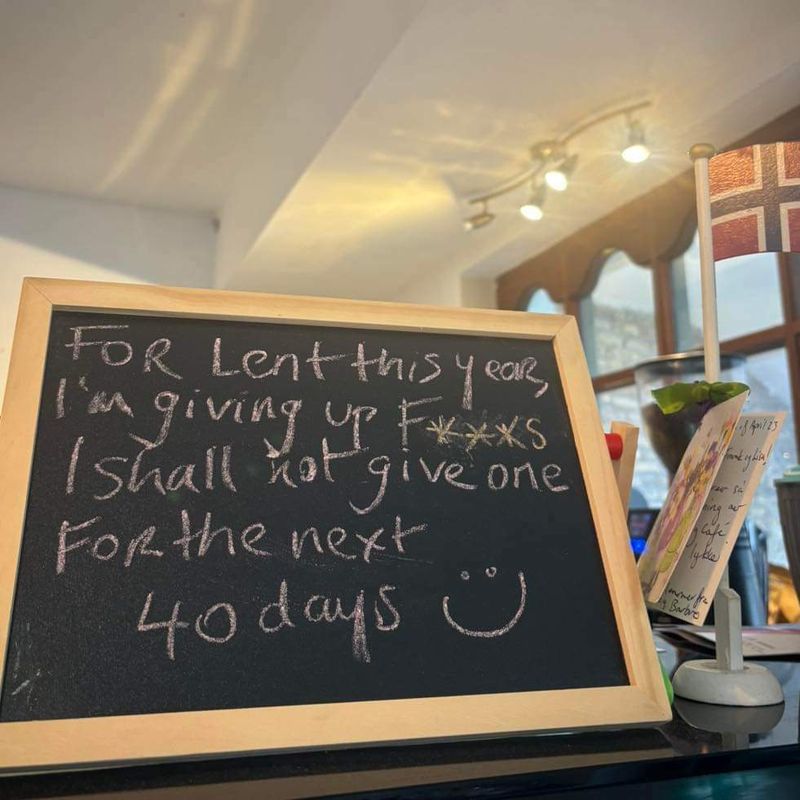 FOR Lent this year,
I'm giving up F***S
I shall not give one
FOR the next
40 days
of April 23